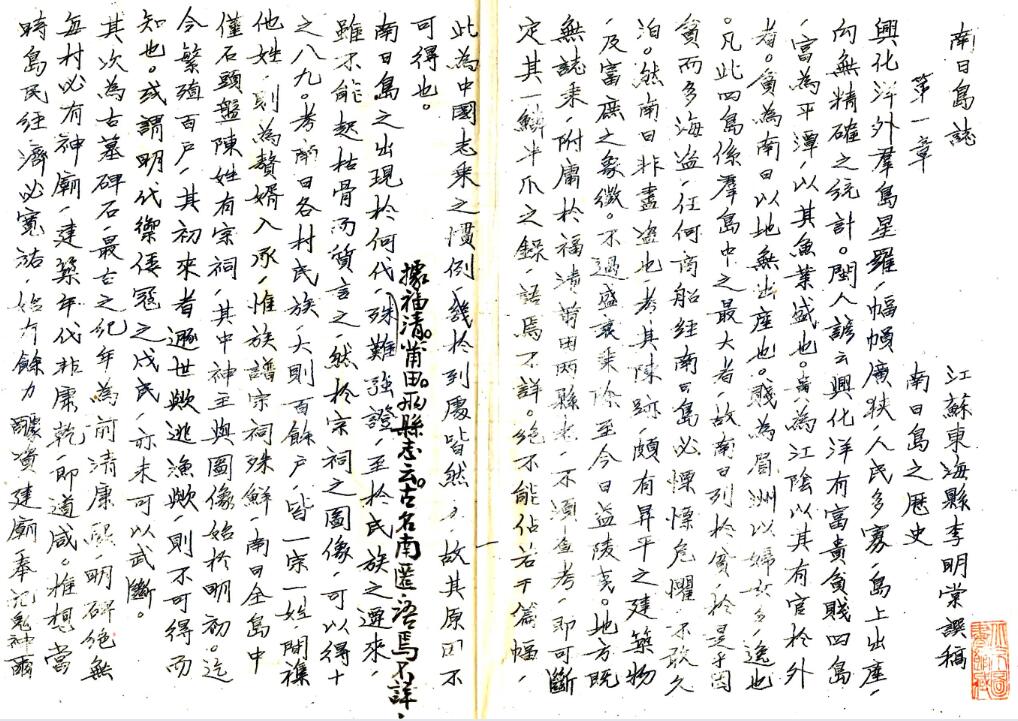 南日島誌
江蘇東海縣李明棠譔稿
第一章
南日島之歷史
興化洋外羣島星羅,幅幀廣狹,人民多寡,島上出產,
向無精確之統計。閩人諺云興化洋有富貴貧賤四島
,富為平潭,以其魚業盛也。貴為江陰以其有官於外
者。貧為南日以地無出產也。賤為眉洲以婦女多逸也
。凡此四島係羣島中之最大者,故南日列於貧,於是乎因
貧而多海盜,任何商船經南日島必慄慄危懼,不敢久
泊。然南日非盡盜也,考其陳跡,頗有昇平之建築物
,及富庶之象徵。不過盛衰乘除,至今日益陵夷。地方既
無誌乘,附庸於福清莆田兩縣志,不須查考,即可斷
定其一鱗半爪之錄,語焉不詳。絕不能佔若干篇幅,
此為中國志乘之慣例,幾於到處皆然,故其原因不
可得也。
據福清。莆田。两縣志云。古名南匿。語焉不詳,
南日島之出現於何代,殊難強證,至於民族之遷來,
雖不能起枯骨而質言之,然於宗祠之圖像,可以得十
之八九。考南日各村民族,大則百餘户,皆一宗一姓,間襍
他姓,則為贅婿入承,惟族譜宗祠殊鮮,南日全島中
僅石頭盤陳姓有宗祠,其中神主與圖像始於明初。迄
今繁殖百户,其初來者遯世歟逃漁歟,則不可得而
知也。或謂明代禦倭寇之戍民,亦未可以武斷。
其次為古墓碑石,最古之紀年為前清康熙,明碑絕無
每村必有神廟,建築年代非康乾,即道咸。推想當
時島民經濟必寬裕,始有餘力醵資建廟奉祀鬼神,